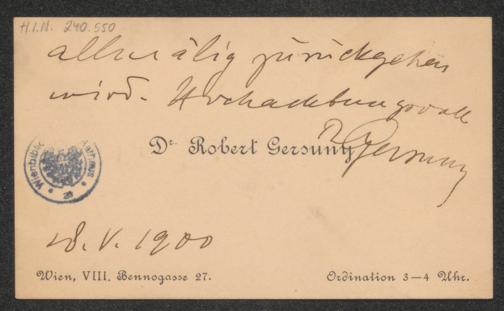 H.I.N. 240.550
allmälig zurückgehen
wird. Hochachtungsvoll
R Gersuny
Dr. Robert Gersuny
Wienbibliothek Rathaus
18. V. 1900
Wien, VIII. Bennogasse 27.
Ordination 3—4 Uhr.